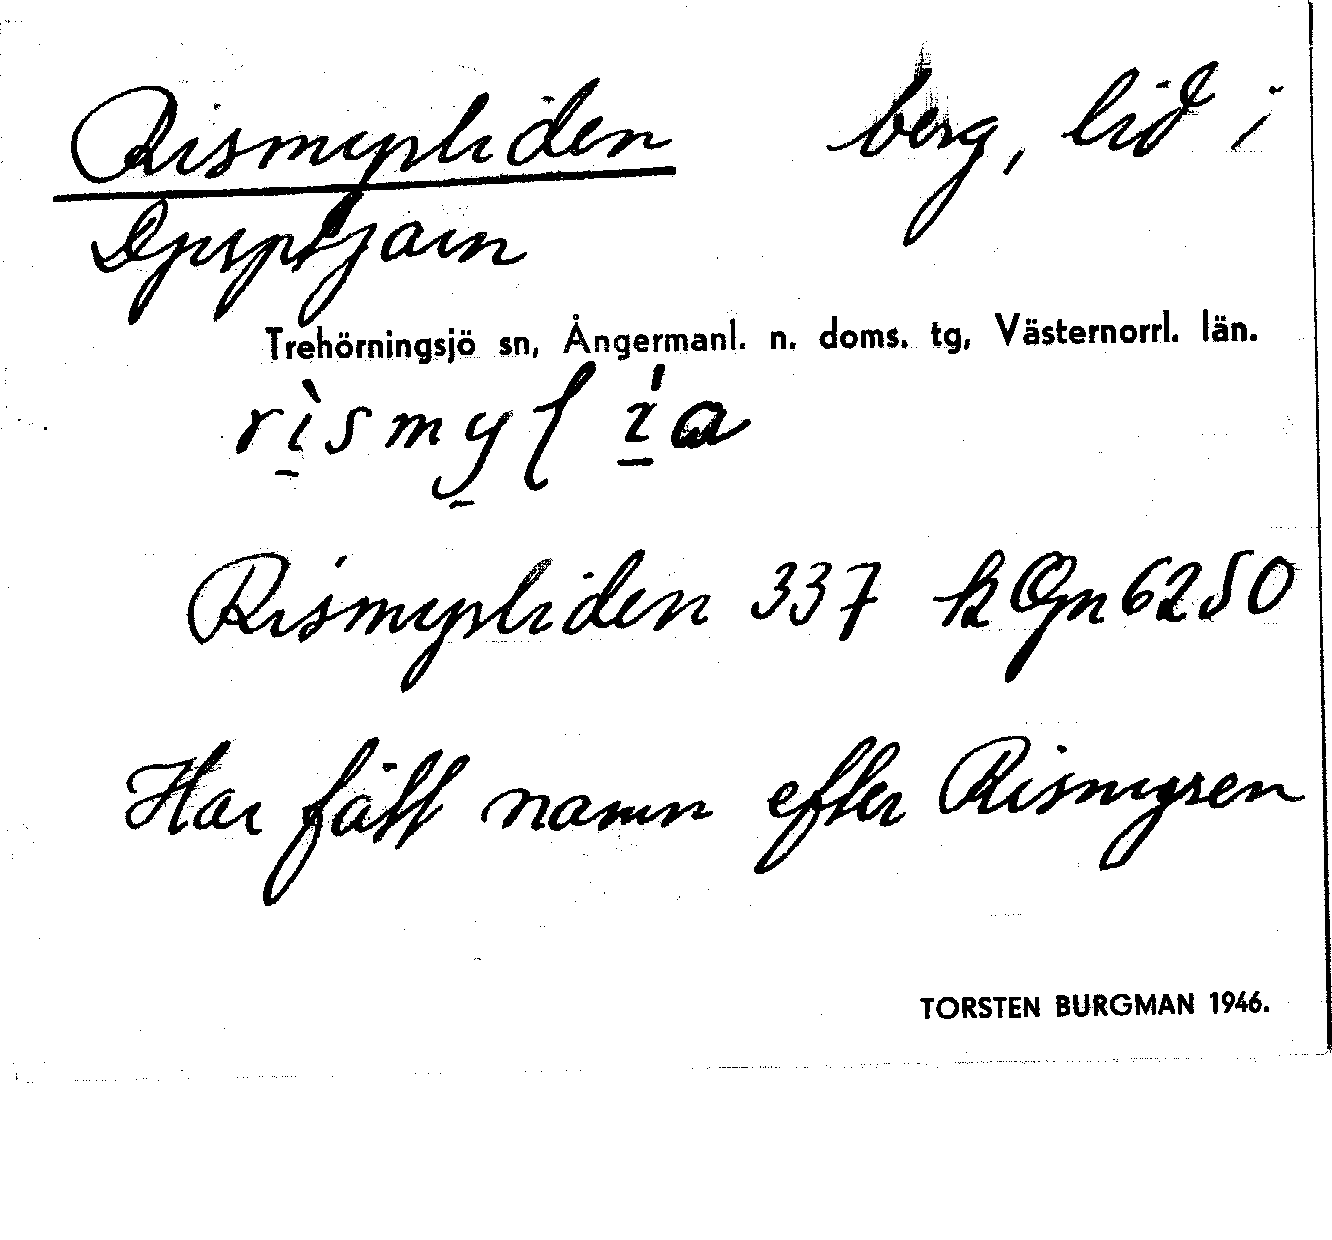 Rismyrliden berg, lid i
Djupsjön
Trehörningsjö sn, Ångermanl. n. doms. tg, Västernorrl. län.
rìsmylía
Rismyrliden 337 k Ggn 6250
Har fått namn efter Rismyren
TORSTEN BURGMAN 1946.